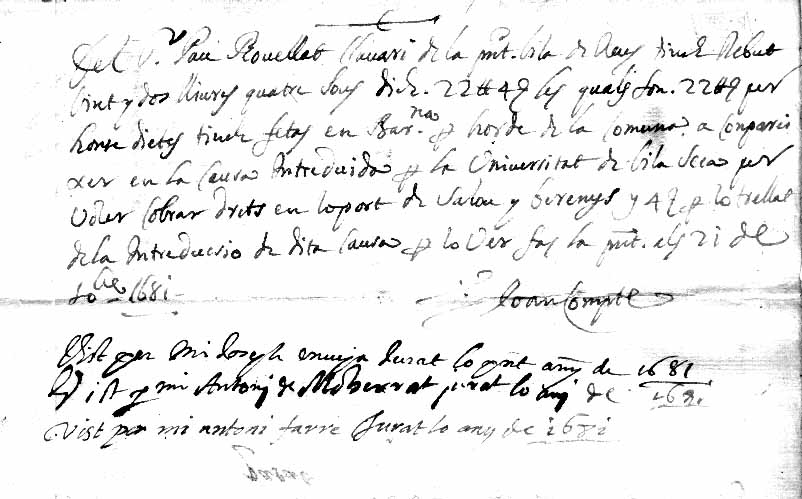 Del Sr Pau Rovellat Clavari de la pnt. bila de Reus tinch Rebut
bint y dos lliures quatre sous dich. 22 ll 4 s les quals son. 22 ll per
honse dietes tinch fetas en Barna p horde de la Comuna. a Conparei
xer en la Causa Introduida p la Universitat de bila Seca per
Voler Cobrar drets en lo port de Salou y berenys y 4 s p lo trellat
de la Introducsio de dita Causa p lo Ver fas la pnt. als 21 de
1681
Joan Compte
Vist per mi Joseph jurat lo pnt any de 1681
Vist p mi Antoni de Monserrat jurat lo any de 1681
Vist per mi antoni farre Jurat lo any de 1681